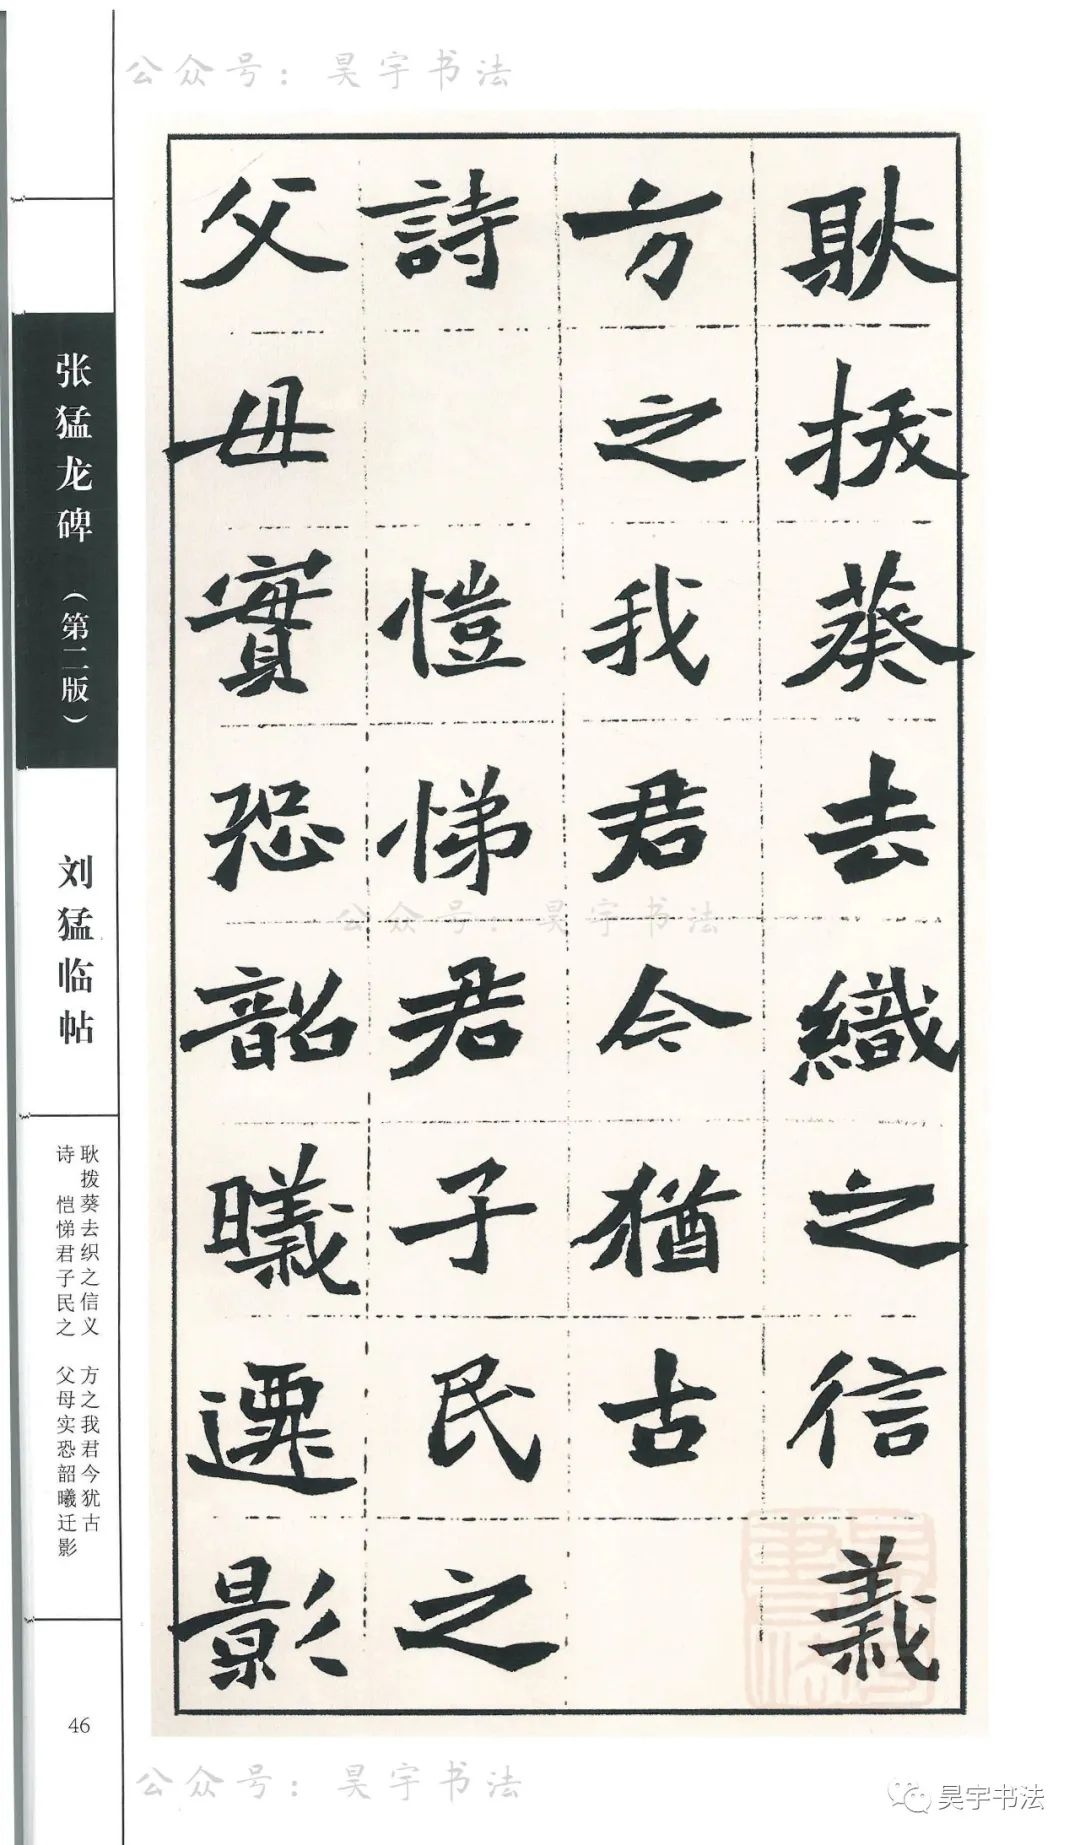 公众号：昊宇书法
耿拔葵去織之信義
方之我君今猶古
詩 愷悌君子民之
父母實恐韶曦遷影
张猛龙碑（第二版）
刘猛临帖
耿拨葵去织之信义 方之我君今犹古
诗 恺悌君子民之 父母实恐韶曦迁影
46
公众号：昊宇书法
公众号：昊宇书法
昊宇书法